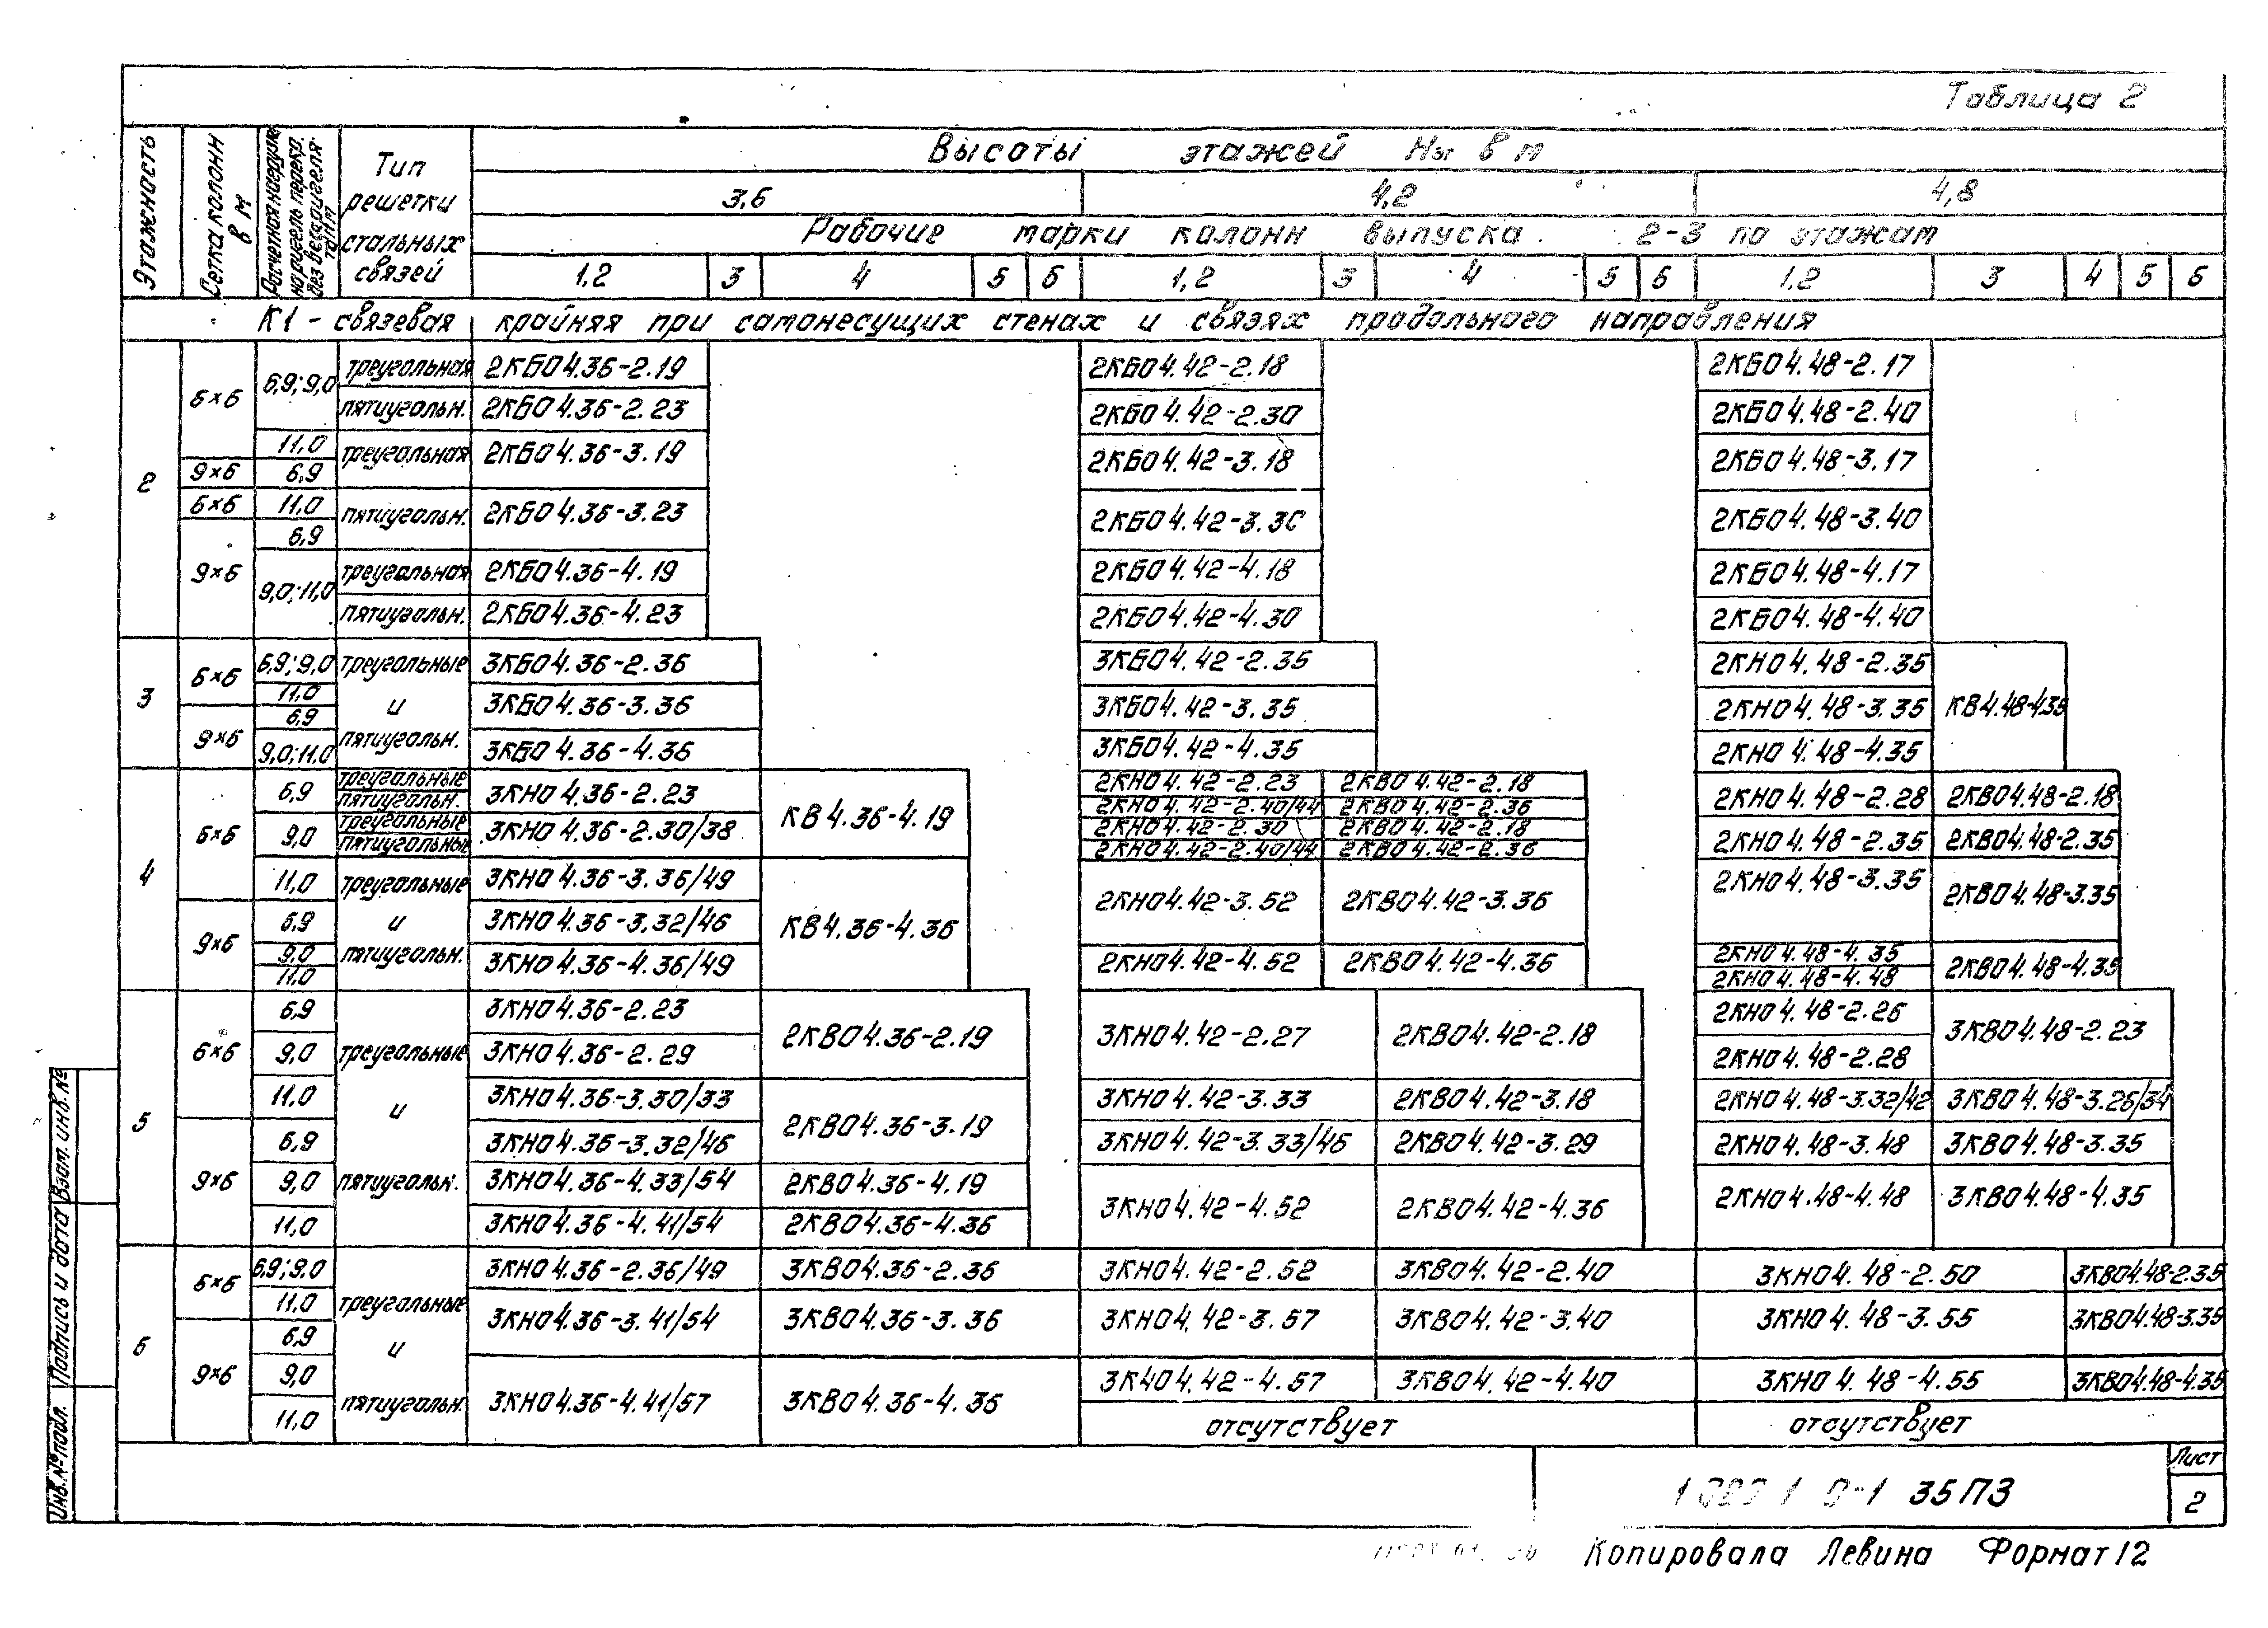 Таблица 2
Этажность
Сетка колонн в м
Расчетная нагрузка на ригель перекр. без веса ригеля тс/м
Тип решетки стальных связей
Высоты этажей Нэт в м
3,6 4,2 4,8
Рабочие марки колонн выпуска 2-3 по этажам
1,2 3 4 5 6 1,2 3 4 5 6 1,2 3 4 5 6
К1 - связевая крайняя при самонесущих стенах и связях продольного направления
2
6×6 6,9; 9,0 треугольная 2КБО4.36-2.19 2КБО4.42-2.18 2КБО4.48-2.17
пятиугольн. 2КБО4.36-2.23 2КБО4.42-2.30 2КБО4.48-2.40
11,0 треугольная 2КБО4.36-3.19 2КБО4.42-3.18 2КБО4.48-3.17
9×6 6,9
6×6 11,0 пятиугольн. 2КБО4.36-3.23 2КБО4.42-3.30 2КБО4.48-3.40
9×6 6,9
9,0; 11,0 треугольная 2КБО4.36-4.19 2КБО4.42-4.18 2КБО4.48-4.17
пятиугольн. 2КБО4.36-4.23 2КБО4.42-4.30 2КБО4.48-4.40
3
6×6 6,9; 9,0 треугольные 3КБО4.36-2.36 3КБО4.42-2.35 2КНО4.48-2.35
11,0 и 3КБО4.36-3.36 3КБО4.42-3.35 2КНО4.48-3.35 КВ4.48-4.35
9×6 6,9
9,0; 11,0 пятиугольн. 3КБО4.36-4.36 3КБО4.42-4.35 2КНО4.48-4.35
4
6×6 6,9 треугольные 3КНО4.36-2.23 КВ4.36-4.19 2КНО4.42-2.23 2КВО4.42-2.18 2КНО4.48-2.28 2КВО4.48-2.18
пятиугольн. 2КНО4.42-2.40/44 2КВО4.42-2.36
9,0 треугольные 3КНО4.36-2.30/38 2КНО4.42-2.30 2КВО4.42-2.18 2КНО4.48-2.35 2КВО4.48-2.35
пятиугольные 2КНО4.42-2.40/44 2КВО4.42-2.36
11,0 треугольные 3КНО4.36-3.36/49 КВ4.36-4.36 2КНО4.42-3.52 2КВО4.42-3.36 2КНО4.48-3.35 2КВО4.48-3.35
9×6 6,9 и 3КНО4.36-3.32/46
9,0 пятиугольн. 3КНО4.36-4.36/49 2КНО4.42-4.52 2КВО4.42-4.36 2КНО4.48-4.35 2КВО4.48-4.35
11,0 2КНО4.48-4.48
5
6×6 6,9 3КНО4.36-2.23 2КВО4.36-2.19 3КНО4.42-2.27 2КВО4.42-2.18 2КНО4.48-2.26 3КВО4.48-2.23
9,0 треугольные 3КНО4.36-2.29 2КНО4.48-2.28
11,0 и 3КНО4.36-3.30/33 2КВО4.36-3.19 3КНО4.42-3.33 2КВО4.42-3.18 2КНО4.48-3.32/42 3КВО4.48-3.26/34
9×6 6,9 3КНО4.36-3.32/46 3КНО4.42-3.33/46 2КВО4.42-3.29 2КНО4.48-3.48 3КВО4.48-3.35
9,0 пятиугольн. 3КНО4.36-4.33/54 2КВО4.36-4.19 3КНО4.42-4.52 2КВО4.42-4.36 2КНО4.48-4.48 3КВО4.48-4.35
11,0 3КНО4.36-4.41/54 2КВО4.36-4.36
6
6×6 6,9; 9,0 3КНО4.36-2.36/49 3КВО4.36-2.36 3КНО4.42-2.52 3КВО4.42-2.40 3КНО4.48-2.50 3КВО4.48-2.35
11,0 треугольные 3КНО4.36-3.41/54 3КВО4.36-3.36 3КНО4.42-3.57 3КВО4.42-3.40 3КНО4.48-3.55 3КВО4.48-3.35
9×6 6,9 и
9,0 3КНО4.36-4.41/57 3КВО4.36-4.36 3К4О4.42-4.57 3КВО4.42-4.40 3КНО4.48-4.55 3КВО4.48-4.35
11,0 пятиугольн. отсутствует отсутствует
Инв.№подл. Подпись и дата Взам.инв.№
35ПЗ
Лист
2
Копировала Левина Формат 12